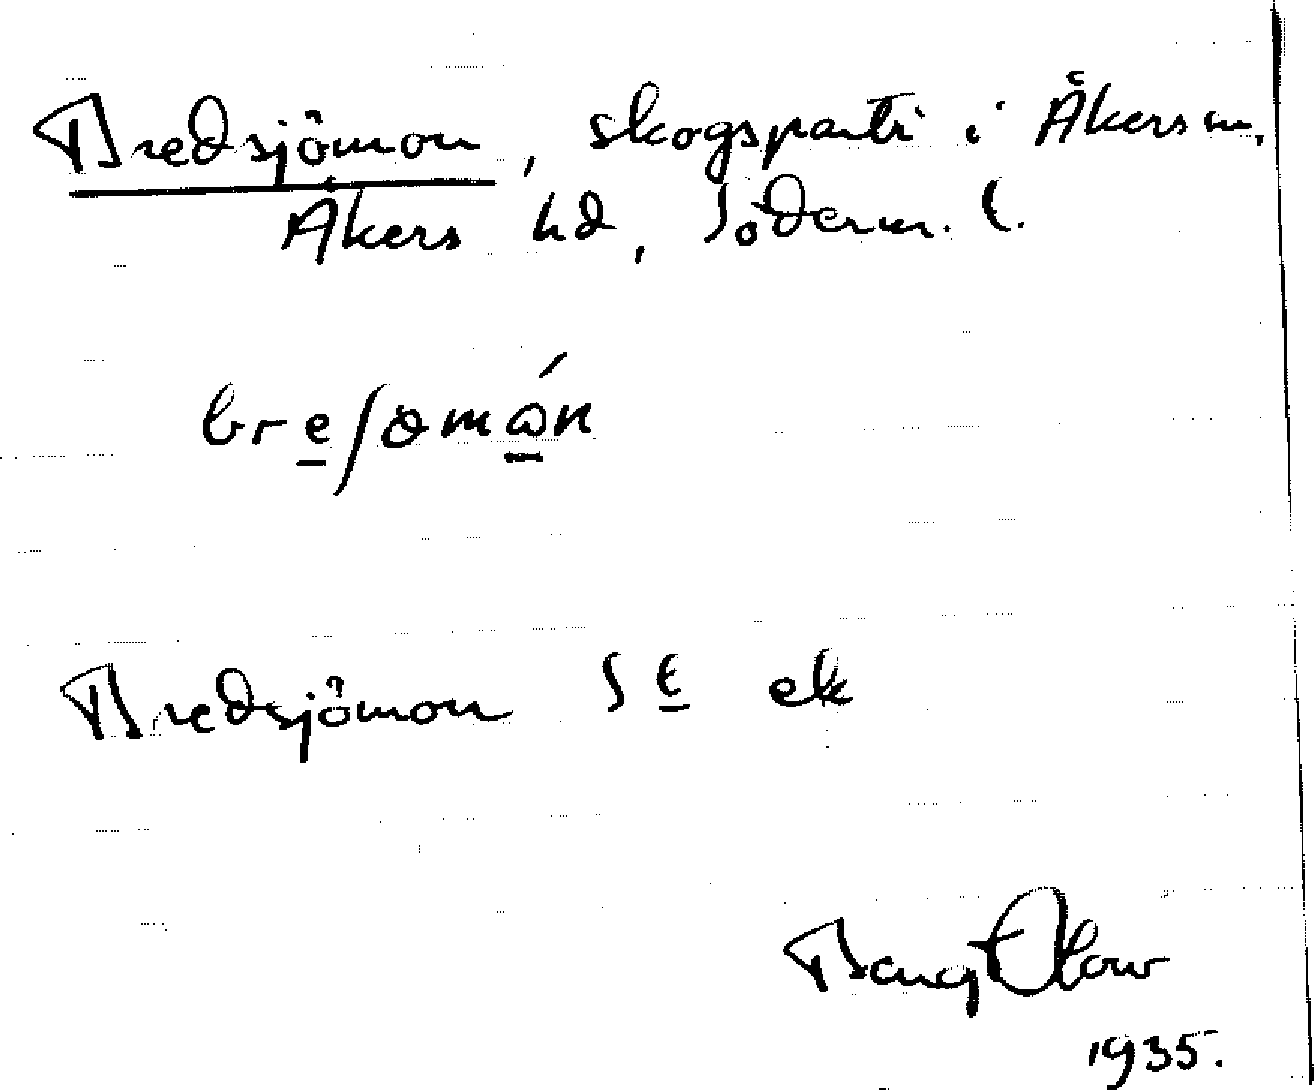 Bredsjömon, skogsparti i Åkers sn,
Åkers hd, Söderm. l.
bre∫ǝmɷ́n
Bredsjömon SE ek
Bengt Olow
1935.